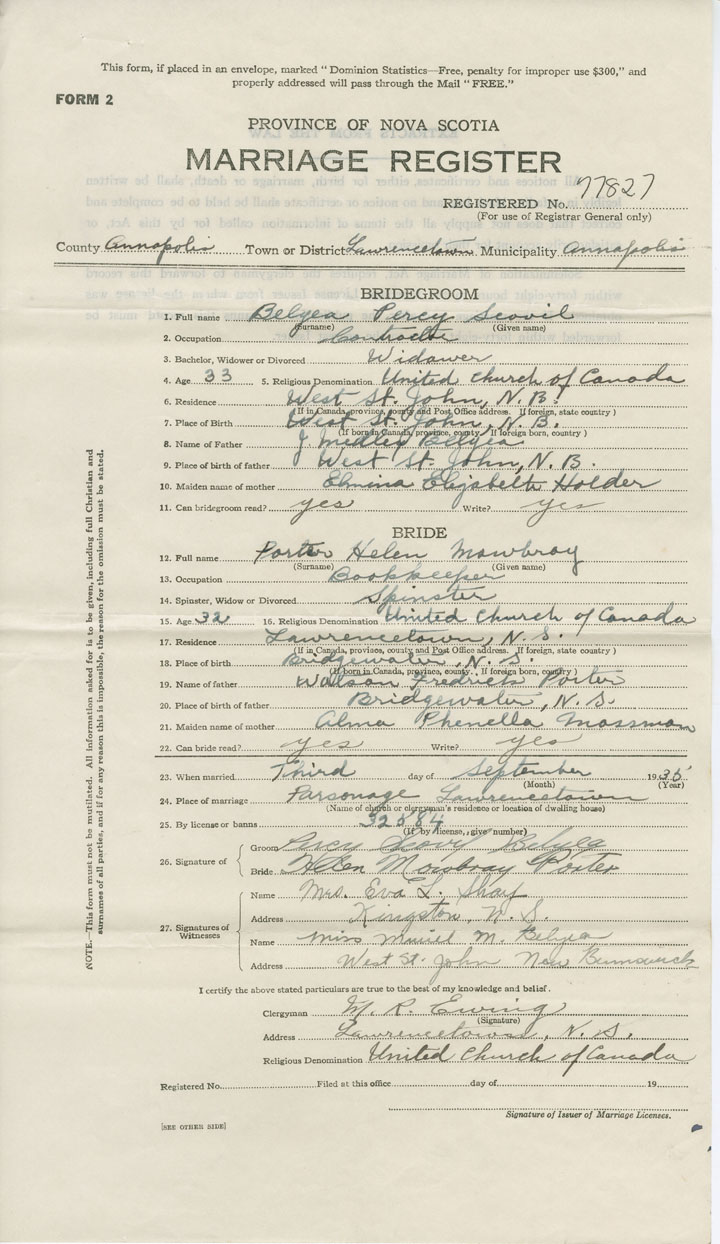 This form, if placed in an envelope, marked "Dominion Statistics—Free, penalty for improper use $300," and
properly addressed will pass through the Mail "FREE."
FORM 2
PROVINCE OF NOVA SCOTIA
MARRIAGE REGISTER
REGISTERED No. 77827
(For use of Registrar General only)
County Annapolis Town or District Lawrencetown Municipality Annapolis
BRIDEGROOM
1. Full name Belyea Percy Scovil
(Surname) (Given name)
2. Occupation Contractor
3. Bachelor, Widower or Divorced Widower
4. Age 33 5. Religious Denomination United Church of Canada
6. Residence West St. John, N. B.
(If in Canada, province, county and Post Office address. If foreign, state country)
7. Place of Birth West St. John, N. B.
(If born in Canada, province, county. If foreign born, country)
8. Name of Father J. Medley Belyea
9. Place of birth of father West St. John, N. B.
10. Maiden name of mother Elmina Elizabeth Holder
11. Can bridegroom read? yes Write? yes
BRIDE
12. Full name Porter Helen Mowbray
(Surname) (Given name)
13. Occupation Bookkeeper
14. Spinster, Widow or Divorced Spinster
15. Age 32 16. Religious Denomination United Church of Canada
17. Residence Lawrencetown, N. S.
(If in Canada, province, county and Post Office address. If foreign, state country)
18. Place of birth Bridgewater, N. S.
(If born in Canada, province, county. If foreign born, country)
19. Name of father Watson Fredrick Porter
20. Place of birth of father Bridgewater, N. S.
21. Maiden name of mother Alma Phenella Mossman
22. Can bride read? yes Write? yes
23. When married Third day of September 1935
(Month) (Year)
24. Place of marriage Parsonage Lawrencetown
(Name of church or clergyman's residence or location of dwelling house)
25. By license or banns 32584
(If by license, give number)
26. Signature of
Groom Percy Scovil Belyea
Bride Helen Mowbray Porter
27. Signatures of Witnesses
Name Mrs. Eva L. Sharp
Address Kingston, N. S.
Name Miss Muriel M. Belyea
Address West St. John New Brunswick
I certify the above stated particulars are true to the best of my knowledge and belief.
Clergyman M. R. Ewing
(Signature)
Address Lawrencetown, N. S.
Religious Denomination United Church of Canada
Registered No. Filed at this office day of 19
Signature of Issuer of Marriage Licenses.
[SEE OTHER SIDE]
NOTE.—This form must not be mutilated. All information asked for is to be given, including full Christian and
surnames of all parties, and if for any reason this is impossible, the reason for the omission must be stated.